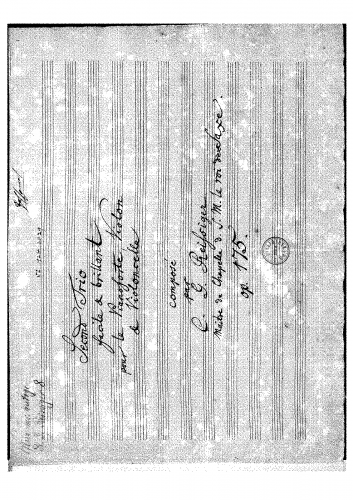 Second Trio
facile & brillant
pour le Pianoforte Violon
& Violoncelle
composé
par
C. G. Reissiger
Maître de Chapelle d. S. M. le roi de Saxe.
op. 175.